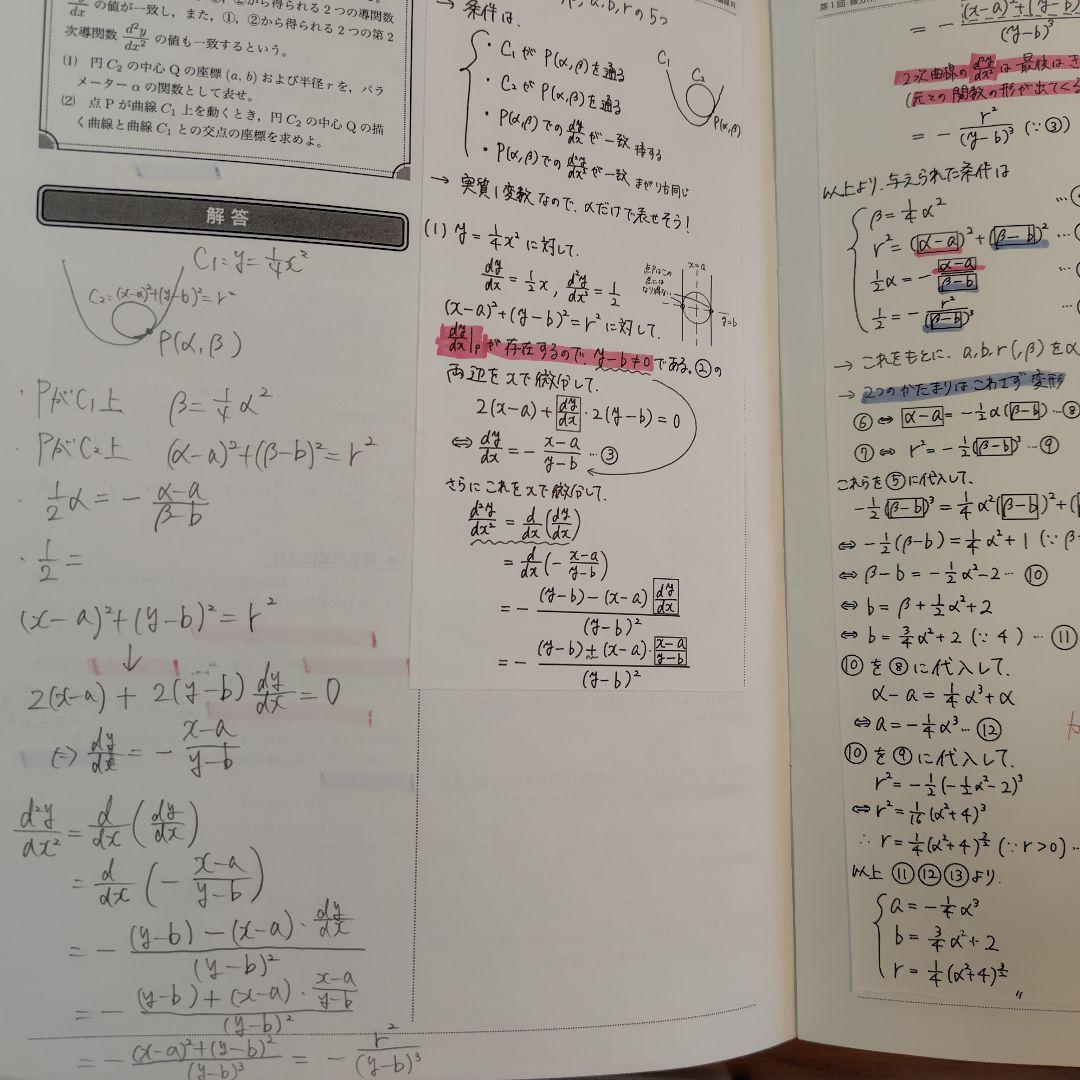 から得られる2つの導関数
の値が一致し,また,①,②から得られる2つの第2
次導関数 d²y/dx² の値も一致するという。
(1) 円 C₂ の中心 Q の座標 (a, b) および半径 r を,パラ
メーター α の関数として表せ。
(2) 点 P が曲線 C₁ 上を動くとき,円 C₂ の中心 Q の描
く曲線と曲線 C₁ との交点の座標を求めよ。
解答
C₁=y=1/4x²
C₂=(x-a)²+(y-b)²=r²
P(α,β)
・PがC₁上 β=1/4α²
・PがC₂上 (α-a)²+(β-b)²=r²
・1/2α=-(α-a)/(β-b)
・1/2=
(x-a)²+(y-b)²=r²
↓
2(x-a)+2(y-b)dy/dx=0
⇔ dy/dx=-(x-a)/(y-b)
d²y/dx²=d/dx(dy/dx)
=d/dx(-(x-a)/(y-b))
=-((y-b)-(x-a)・dy/dx)/(y-b)²
=-((y-b)+(x-a)・(x-a)/(y-b))/(y-b)²
=-((x-a)²+(y-b)²)/(y-b)³=-r²/(y-b)³
a,b,rの5つ
→ 条件は、
・C₁がP(α,β)を通る
・C₂がP(α,β)を通る
・P(α,β)でのdy/dxが一致 接する
・P(α,β)でのd²y/dx²が一致 まがり方同じ
C₁
C₂
P(α,β)
→ 実質1変数なので、αだけで表せそう!
(1) y=1/4x²に対して、
dy/dx=1/2x, d²y/dx²=1/2
x=a
y=b
(x-a)²+(y-b)²=r²に対して、
dy/dx|pが存在するので、y-b≠0である。②の
両辺をxで微分して、
2(x-a)+dy/dx・2(y-b)=0
⇔ dy/dx=-(x-a)/(y-b) …③
さらにこれをxで微分して、
d²y/dx²=d/dx(dy/dx)
=d/dx(-(x-a)/(y-b))
=-((y-b)-(x-a)dy/dx)/(y-b)²
=-((y-b)+(x-a)・(x-a)/(y-b))/(y-b)²
第1回
=-((x-a)²+(y-b)/(y-b)³
2次曲線のd²y/dx²は最後はき
(元々の関数の形が出てくる
=-r²/(y-b)³ (∵③)
以上より、与えられた条件は
β=1/4α² …
r²=(α-a)²+(β-b)² …
1/2α=-(α-a)/(β-b) …
1/2=-r²/(β-b)³
→ これをもとに、a,b,r(,β)をα
→ 2つのかたまりはこわさず変形
⑥⇔ α-a=-1/2α(β-b)…⑧
⑦⇔ r²=-1/2(β-b)³…⑨
これらを⑤に代入して、
-1/2(β-b)³=1/4α²(β-b)²+(
⇔ -1/2(β-b)=1/4α²+1 (∵β-
⇔ β-b=-1/2α²-2…⑩
⇔ b=β+1/2α²+2
⇔ b=3/4α²+2 (∵4) …⑪
⑩を⑧に代入して、
α-a=1/4α³+α
⇔ a=-1/4α³…⑫
⑩を⑨に代入して、
r²=-1/2(-1/2α²-2)³
⇔ r²=1/16(α²+4)³
∴ r=1/4(α²+4)^(3/2) (∵r>0)…
以上⑪⑫⑬より、
a=-1/4α³
b=3/4α²+2
r=1/4(α²+4)^(3/2)